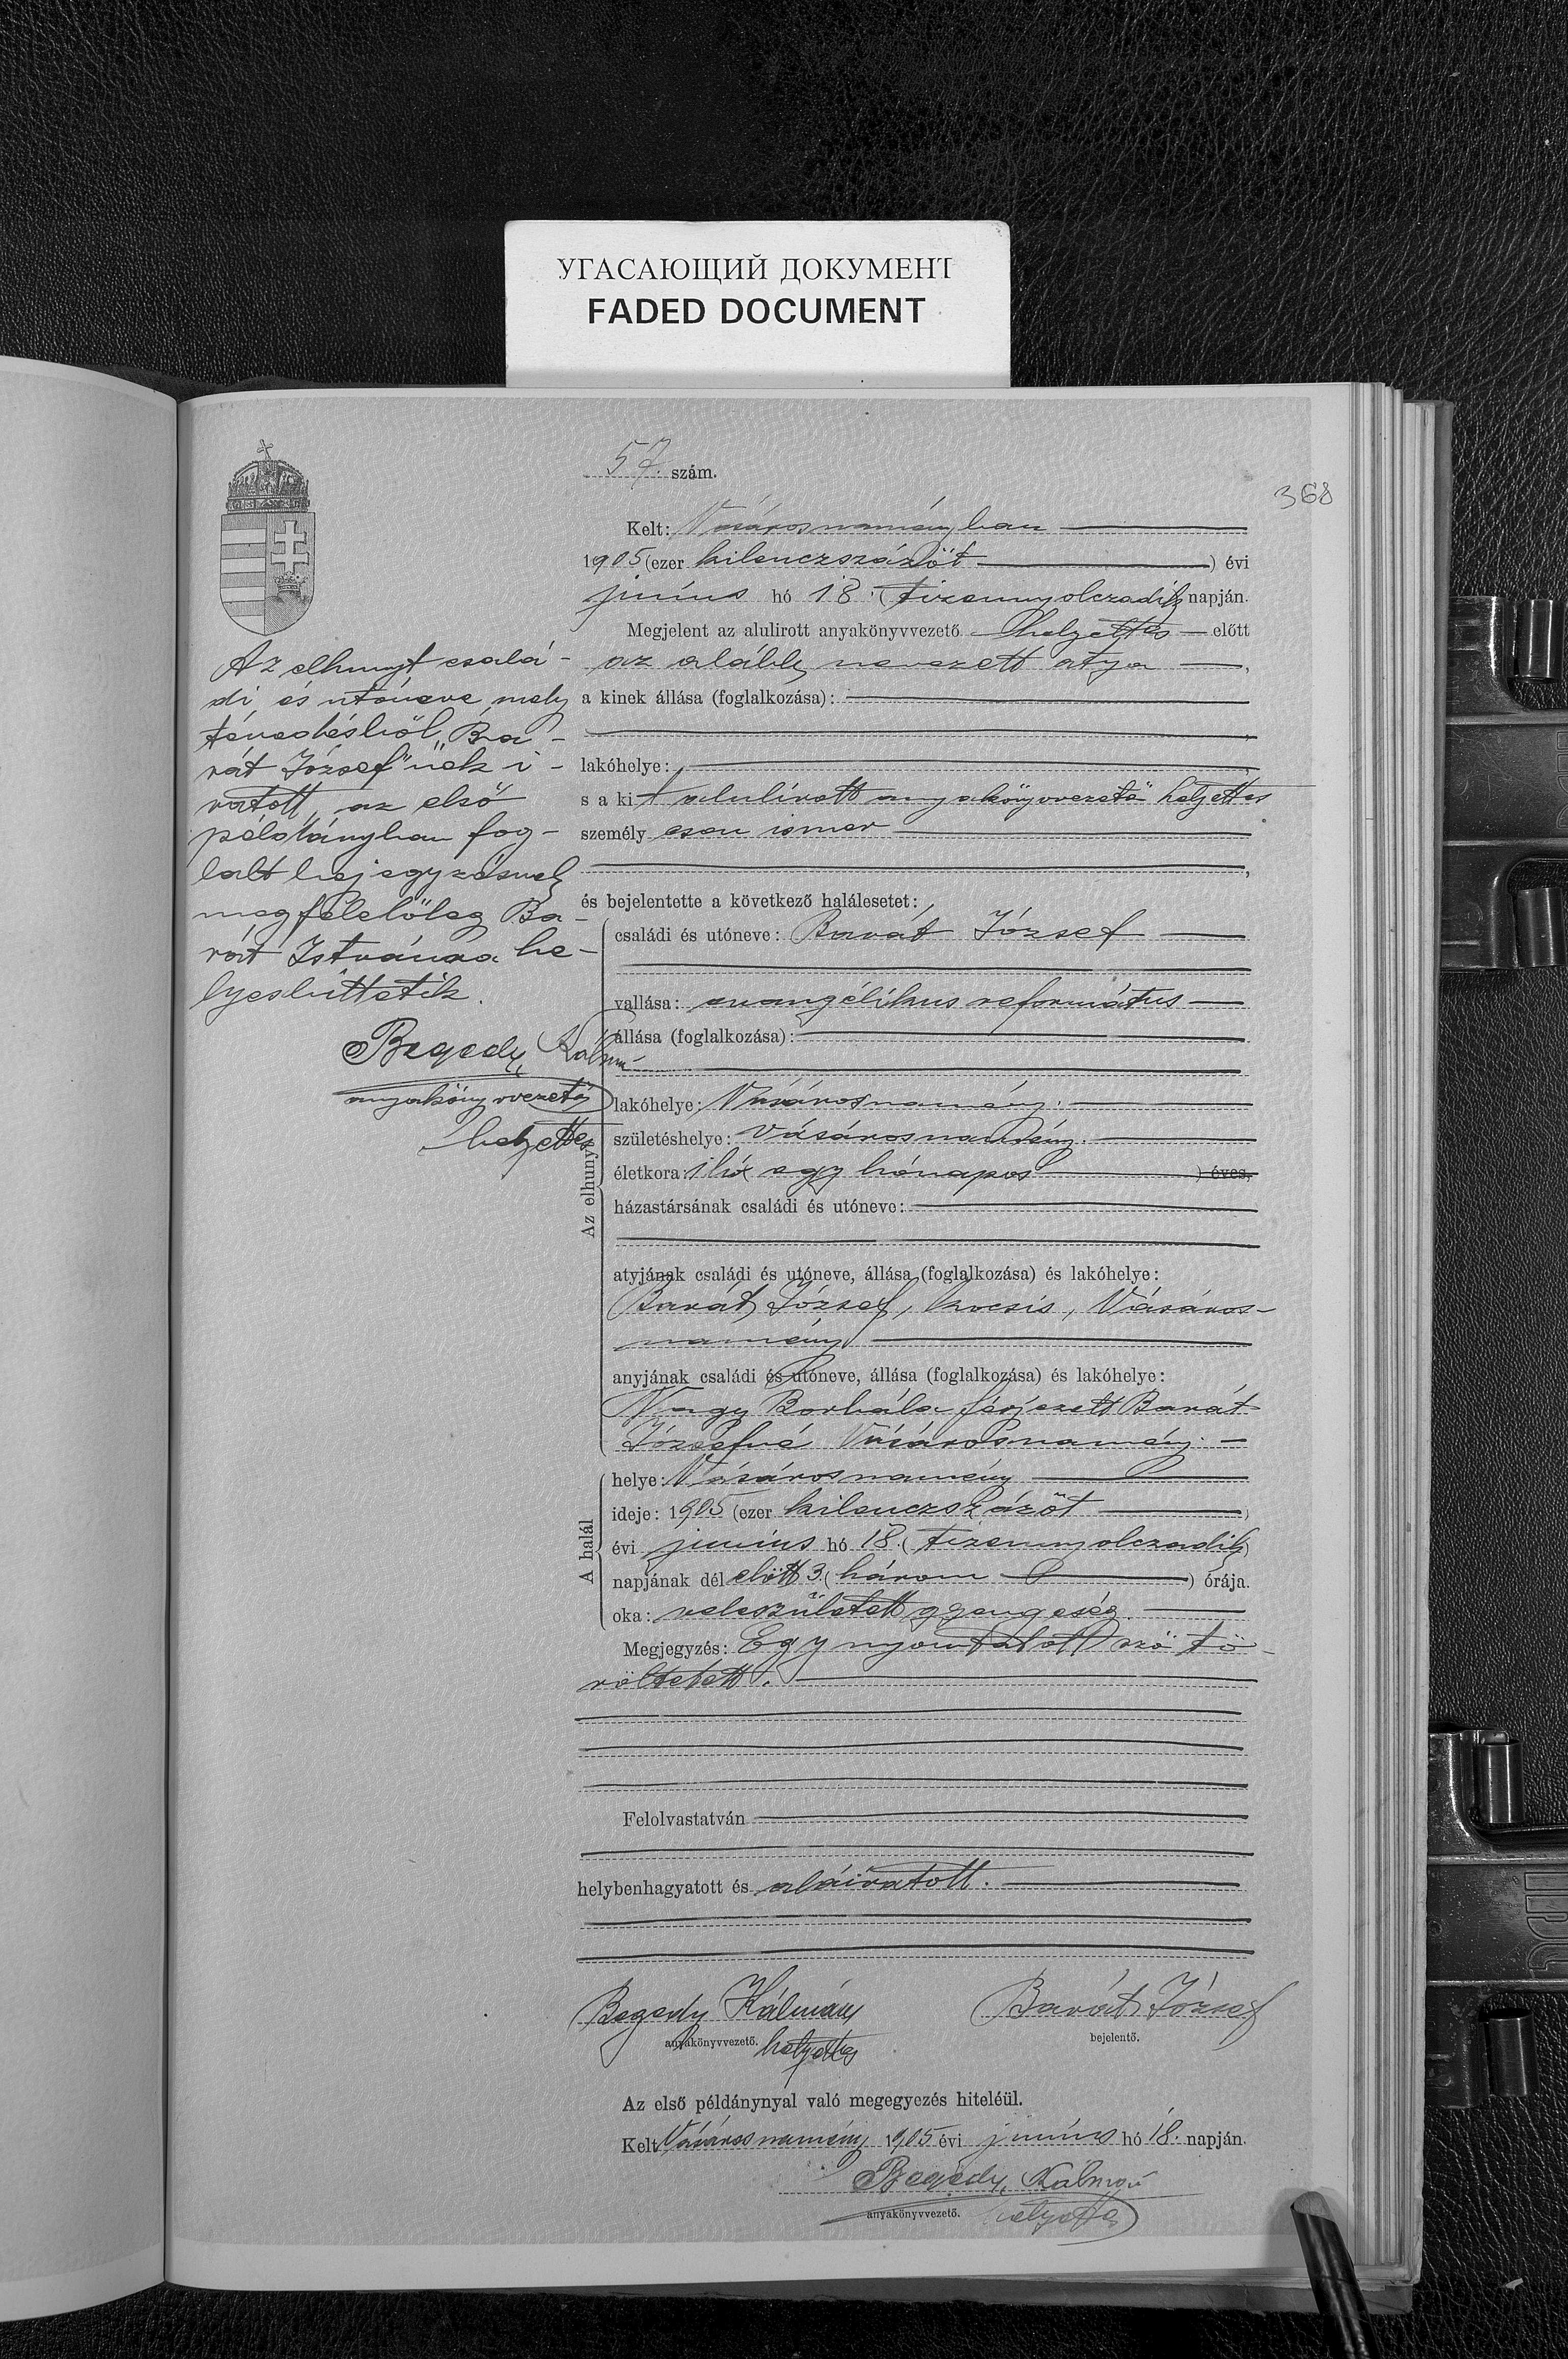 УГАСАЮЩИЙ ДОКУМЕНТ
FADED DOCUMENT
57. szám.
368
Kelt: Vásárosnaményban
1905 (ezer kilenczszázöt ) évi
június hó 18. (tizennyolczadik napján.
Megjelent az alulirott anyakönyvvezető helyettes előtt
az alább nevezett atya ,
a kinek állása (foglalkozása):
lakóhelye:
s a kit alulírott anyakönyvvezető helyettes
személyesen ismer
és bejelentette a következő halálesetet:
Az elhunyt családi és utóneve: Barát József
vallása: evangélikus református
állása (foglalkozása):
lakóhelye: Vásárosnamény.
születéshelye: Vásárosnamény.
életkora: 1 hó egy hónapos ) éves,
házastársának családi és utóneve:
atyjának családi és utóneve, állása (foglalkozása) és lakóhelye:
Barát József, kocsis, Vásáros-
namény
anyjának családi és utóneve, állása (foglalkozása) és lakóhelye:
Nagy Borbála férjezett Barát
Józsefné Vásárosnamény.
A halál helye: Vásárosnamény
ideje: 1905 (ezer kilenczszázöt )
évi június hó 18. (tizennyolczadik)
napjának dél előtt 3. (három ) órája.
oka: veleszületett gyengeség.
Megjegyzés: Egy nyomtatott szó tö-
röltetett.
Felolvastatván
helybenhagyatott és aláíratott.
Begedy Kálmán
anyakönyvvezető. helyettes
Barát József
bejelentő.
Az első példánynyal való megegyezés hiteléül.
Kelt Vásárosnamény 1905 évi június hó 18. napján.
Begedy Kálmán
anyakönyvvezető. helyettes
Az elhunyt csalá-
di és utóneve, mely
tévedésből „Ba-
rát József"nek i-
ratott, az első
példányban fog-
lalt bejegyzésnek
megfelelőleg Ba-
rát Istvánra he-
lyesbíttetik.
Begedy Kálmán
anyakönyvvezető
helyettes